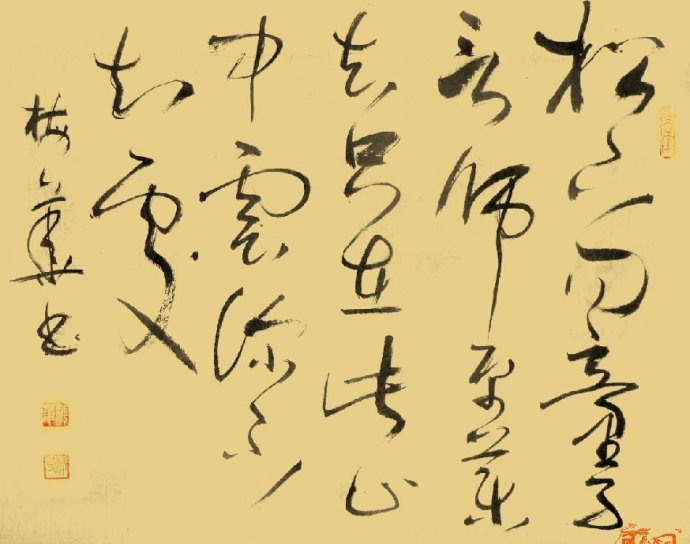 松下问童子
言师采药
去只在此山
中云深不
知处
梅華书